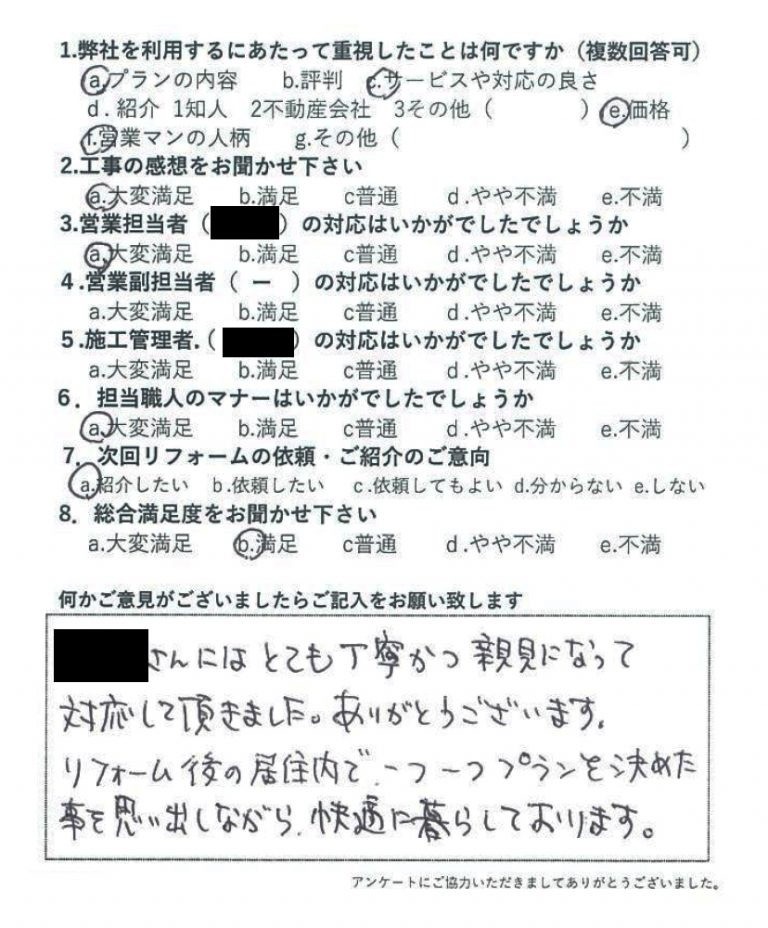 1.弊社を利用するにあたって重視したことは何ですか（複数回答可）
a.プランの内容 b.評判 c.サービスや対応の良さ
d．紹介 1知人 2不動産会社 3その他（ ） e.価格
f.営業マンの人柄 g.その他（ ）
2.工事の感想をお聞かせ下さい
a.大変満足 b.満足 c普通 d.やや不満 e.不満
3.営業担当者（ ）の対応はいかがでしたでしょうか
a.大変満足 b.満足 c普通 d.やや不満 e.不満
4.営業副担当者（ ー ）の対応はいかがでしたでしょうか
a.大変満足 b.満足 c普通 d.やや不満 e.不満
5.施工管理者.（ ）の対応はいかがでしたでしょうか
a.大変満足 b.満足 c普通 d.やや不満 e.不満
6．担当職人のマナーはいかがでしたでしょうか
a.大変満足 b.満足 c普通 d.やや不満 e.不満
7．次回リフォームの依頼・ご紹介のご意向
a.紹介したい b.依頼したい c.依頼してもよい d.分からない e.しない
8．総合満足度をお聞かせ下さい
a.大変満足 b.満足 c普通 d.やや不満 e.不満
何かご意見がございましたらご記入をお願い致します
さんにはとても丁寧かつ親見になって
対応して頂きました。ありがとうございます。
リフォーム後の居住内で、一つ一つプランを決めた
事を思い出しながら、快適に暮らしております。
アンケートにご協力いただきましてありがとうございました。